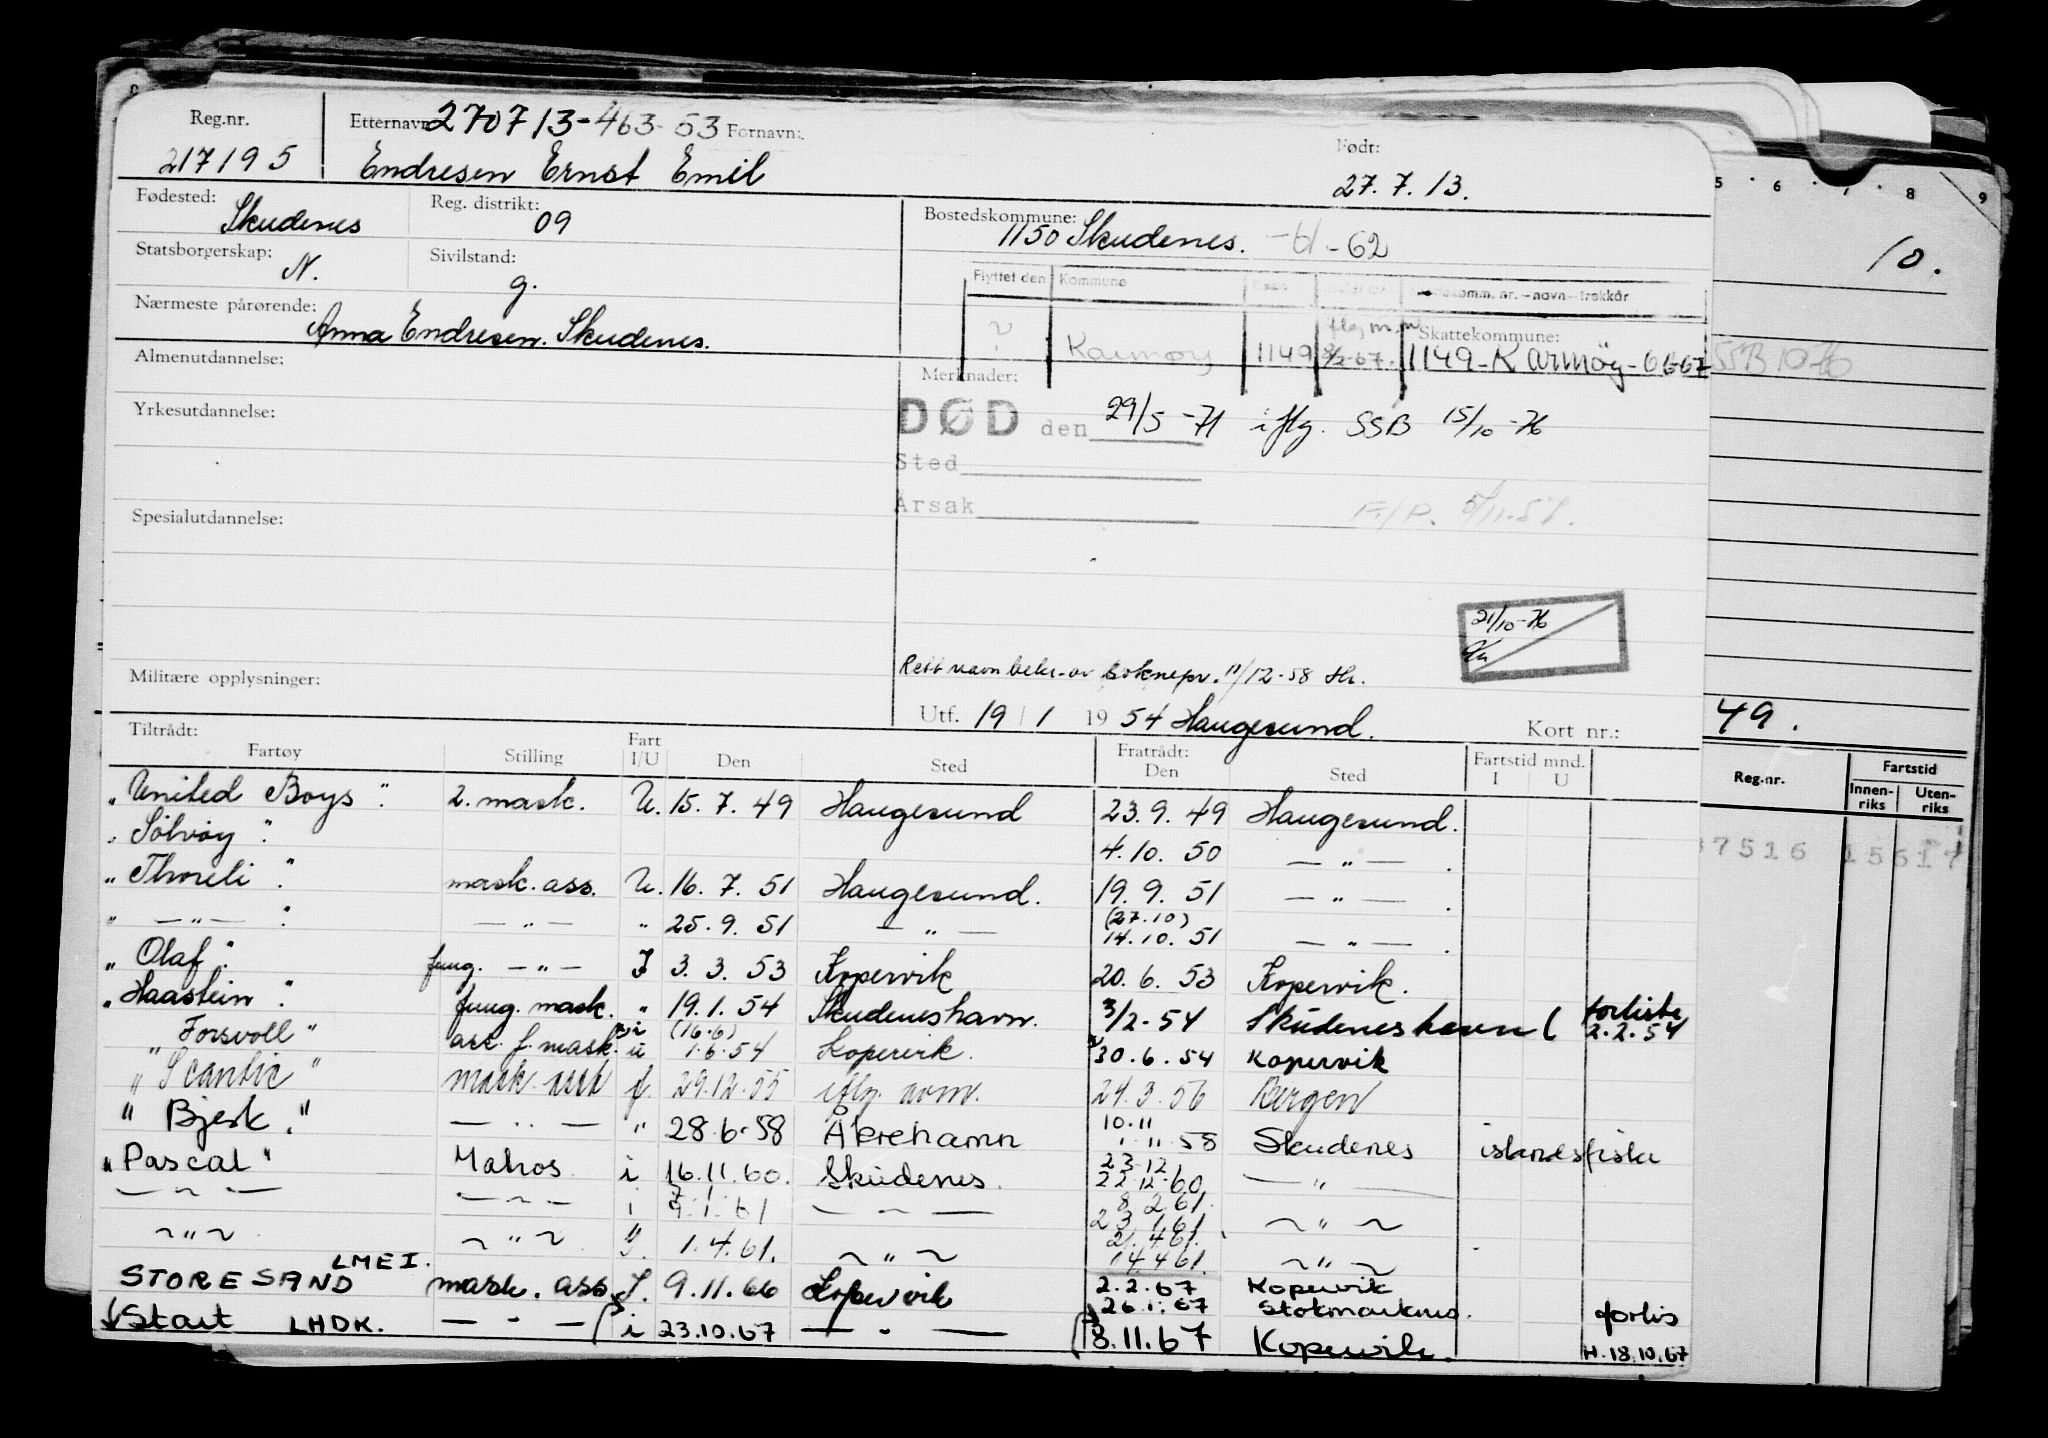 Reg.nr. Etternavn: 270713-463-53 Fornavn: Født:
217195 Endresen Ernst Emil 27.7.13.
Fødested: Skudenes Reg. distrikt: 09 Bostedskommune: 1150 Skudenes. -61-62
10.
Statsborgerskap: N. Sivilstand: g.
Flyttet den Kommune komm. nr. - navn - trekkår
Nærmeste pårørende: Anna Endresen. Skudenes.
Skattekommune:
~ Karmøy 1149 1149-Karmøy-6667
Almenutdannelse:
Merknader:
Yrkesutdannelse:
DØD den 29/5-71 iflg. SSB 15/10-76
Sted
Årsak
Spesialutdannelse:
21/10-76
Rett navn bekr. av 11/12-58
Militære opplysninger:
Utf. 19/1 1954 Haugesund. Kort nr.:
49.
Tiltrådt: Fratrådt:
Fartøy Stilling Fart I/U Den Sted Den Sted Fartstid mnd. I U
Reg.nr. Fartstid Innen-riks Uten-riks
"United Boys". 2. mask. U. 15.7.49 Haugesund 23.9.49 Haugesund.
"Sølvøy". 4.10.50 — " —.
7516 15617
"Thoreli". mask. ass. U. 16.7.51 Haugesund. 19.9.51 — " —.
" — " — ". — " — " 25.9.51 — " — (27.10) 14.10.51 — " —.
"Olaf". fung. — " — I 3.3.53 Kopervik 20.6.53 Kopervik.
"Haastein". fung. mask. " 19.1.54 Skudeneshavn. 3/2-54 Skudeneshavn ( forliste 2.2.54
"Forsvoll" ass. f. mask. i u (16.6) 1.6.54 Kopervik. 30.6.54 Kopervik
"Scantic" mask. ass 29.12.55 iflg. 24.3.56 Bergen
"Bjerk." — " — " 28.6.58 Åkrehamn 10.11 1.11.58 Skudenes islandsfiske
"Pascal" Matros i 16.11.60. Skudenes. 23.12 22.12.60 — " —
— " — — " — i 7.1. 9.1.61 — " — 8.2.61. 23.1.61. ~ " ~
~ " ~ ~ " ~ 1.4.61. ~ " ~ 21.4.61. 14.4.61. ~ " ~
STORESAND LMEI. mask. ass. I. 9.11.66 Kopervik 2.2.67 Kopervik
26.1.67 Stokmarknes. forlis
Start LHDK. — " — i 23.10.67 — " — 8.11.67 Kopervik. H. 18.10.67